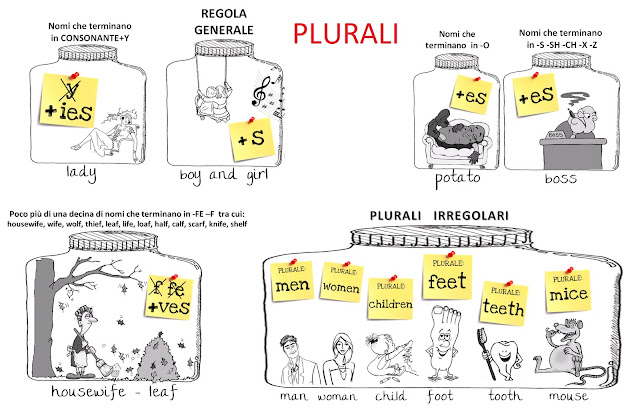 Nomi che terminano
in CONSONANTE+Y
REGOLA
GENERALE
PLURALI
Nomi che
terminano in -O
Nomi che terminano
in -S -SH -CH -X -Z
y
+ies
+s
+es
+es
BOSS
lady
boy and girl
potato
boss
Poco più di una decina di nomi che terminano in -FE –F tra cui:
housewife, wife, wolf, thief, leaf, life, loaf, half, calf, scarf, knife, shelf
PLURALI IRREGOLARI
f fe
+ves
PLURALE:
men
PLURALE:
women
PLURALE:
children
PLURALE:
feet
PLURALE:
teeth
PLURALE:
mice
housewife - leaf
man woman child foot tooth mouse